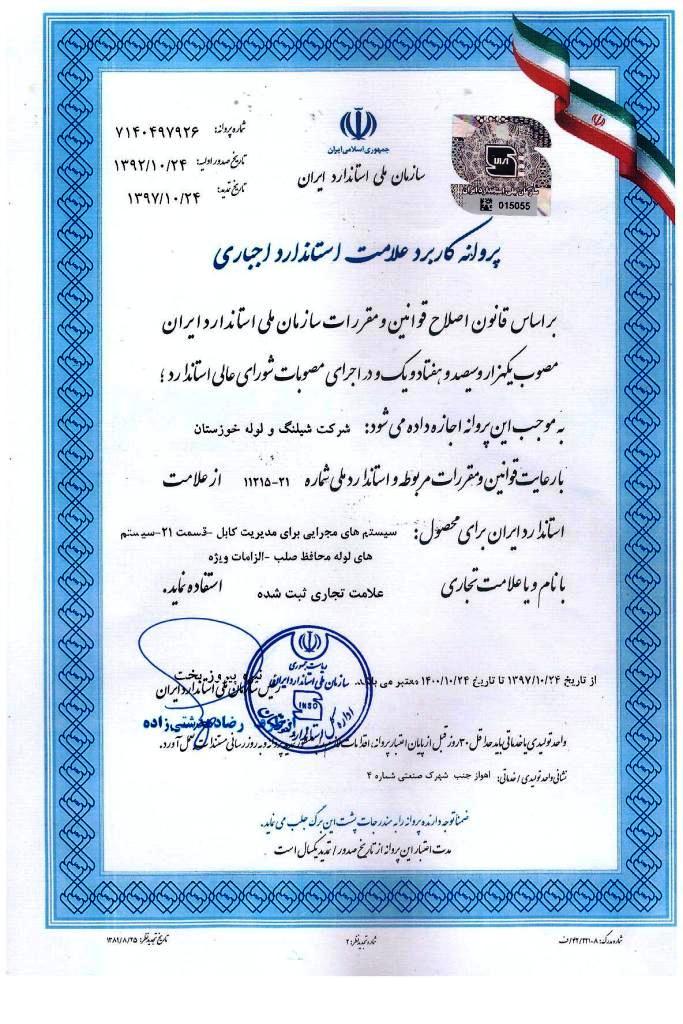 شماره پروانه: ۷۱۴۰۴۹۷۹۲۶
تاریخ صدور اولیه: ۱۳۹۲/۱۰/۲۴
تاریخ تمدید: ۱۳۹۷/۱۰/۲۴
جمهوری اسلامی ایران
سازمان ملی استاندارد ایران
015055
پروانه کاربرد علامت استاندارد اجباری
بر اساس قانون اصلاح قوانین و مقررات سازمان ملی استاندارد ایران
مصوب یکهزار و سیصد و هفتاد و یک و در اجرای مصوبات شورای عالی استاندارد ؛
به موجب این پروانه اجازه داده می شود: شرکت شیلنگ و لوله خوزستان
با رعایت قوانین و مقررات مربوطه و استاندارد ملی شماره ۱۱۲۱۵-۲۱ از علامت
استاندارد ایران برای محصول: سیستم های مجرایی برای مدیریت کابل -قسمت ۲۱-سیستم
های لوله محافظ صلب -الزامات ویژه
با نام و یا علامت تجاری علامت تجاری ثبت شده استفاده نماید.
ریاست جمهوری
سازمان ملی استاندارد ایران
INSO
نیره پیروزبخت
رئیس سازمان ملی استاندارد ایران
از تاریخ ۱۳۹۷/۱۰/۲۴ تا تاریخ ۱۴۰۰/۱۰/۲۴ معتبر می باشد.
واحد تولیدی یا خدماتی باید حداقل ۳۰ روز قبل از پایان اعتبار پروانه، اقدامات لازم پروانه و به روز رسانی مستندات بعمل آورد.
نشانی واحد تولیدی / خدماتی: اهواز جنب شهرک صنعتی شماره ۴
ضمنا توجه دارنده پروانه را به مندرجات پشت این برگ جلب می نماید.
مدت اعتبار این پروانه از تاریخ صدور / تمدید یکسال است
شماره مدرک: ف/۴۲/۲۲۱۰۸
شماره تجدید نظر: ۲
تاریخ تجدید نظر: ۱۳۸۹/۸/۲۵